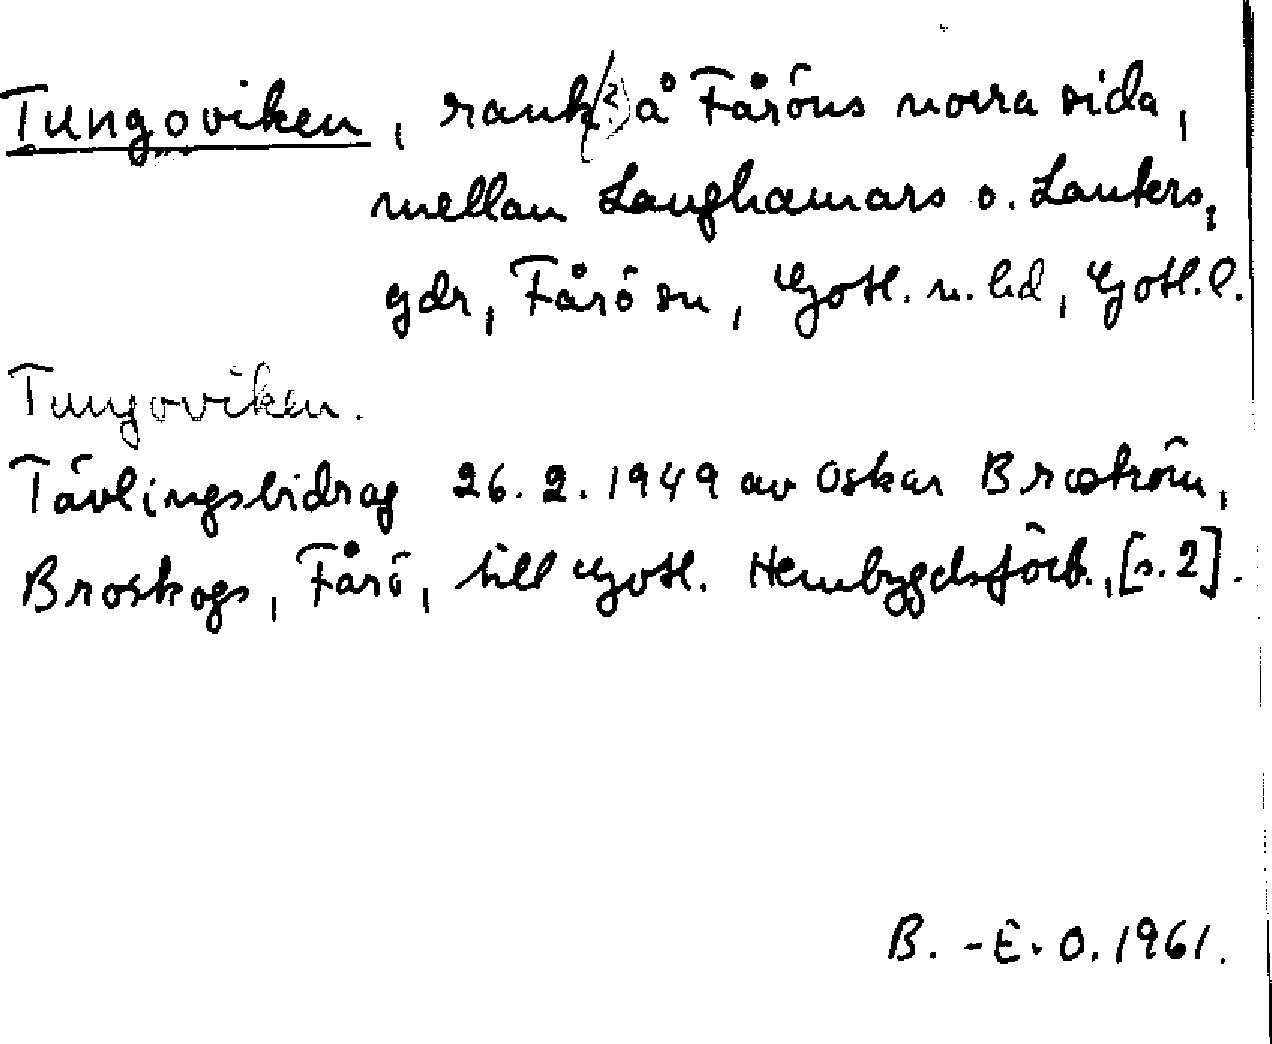 Tungoviken, rauk(?) å Fåröns norra sida,
mellan Langhamars o. Lauters,
gdr, Fårö sn, Gotl. n. hd, Gotl. l.
Tungoviken.
Tävlingsbidrag 26.2.1949 av Oskar Broström,
Broskogs, Fårö, till Gotl. Hembygdsförb., [s. 2].
B.-E. O. 1961.